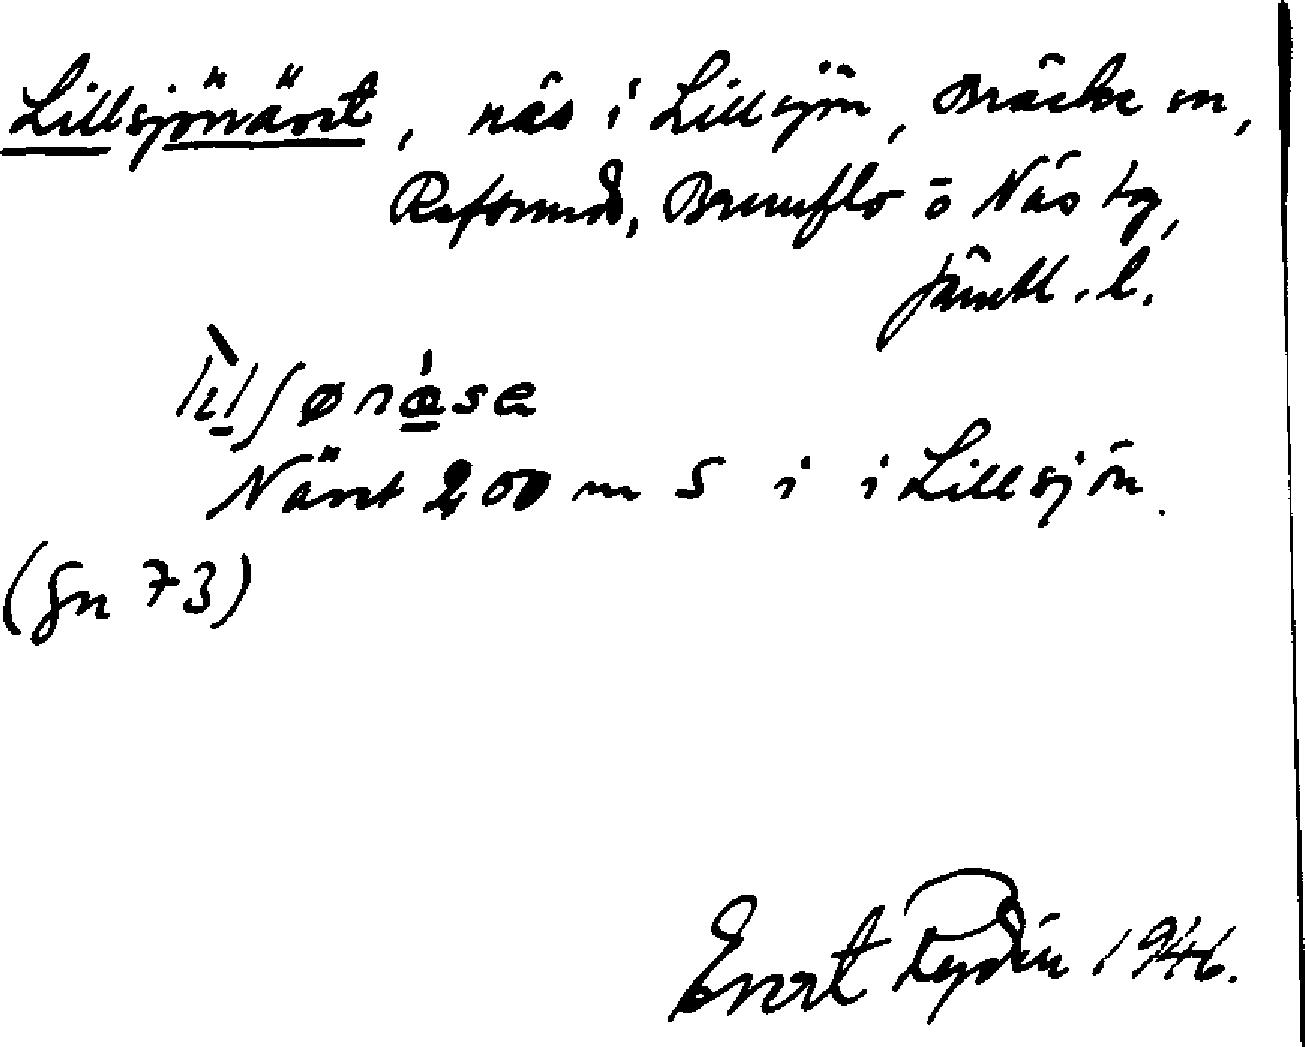 Lillsjönäset, näs i Lillsjön, Bräcke sn,
Refsunds, Brunflo o Näs tg,
Jämtl. l.
Näset 200 m S i i Lillsjön.
(Gn 73)
Evert Rydén 1946.